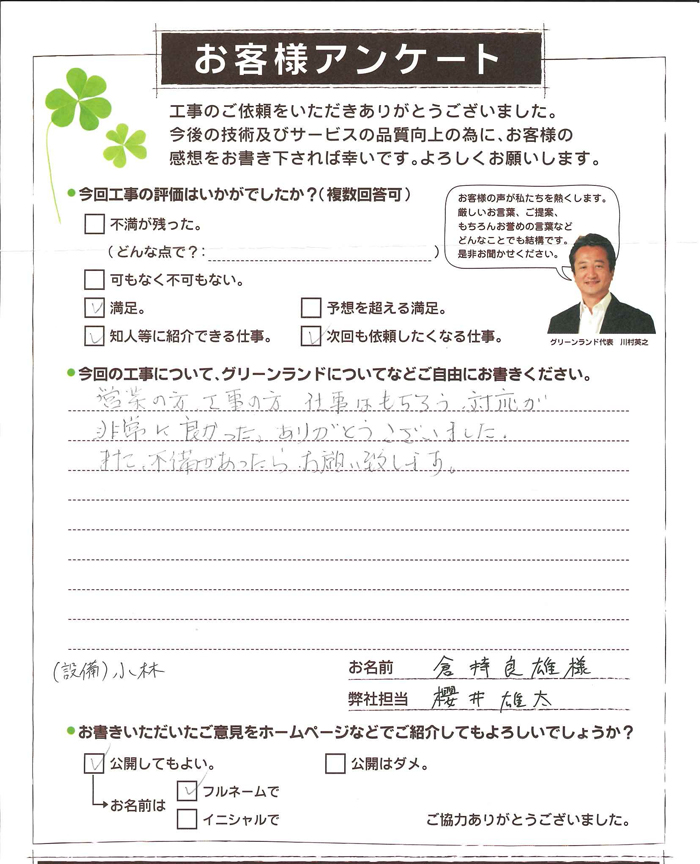 お客様アンケート
工事のご依頼をいただきありがとうございました。
今後の技術及びサービスの品質向上の為に、お客様の
感想をお書き下されば幸いです。よろしくお願いします。
今回工事の評価はいかがでしたか?(複数回答可)
不満が残った。
(どんな点で?: )
可もなく不可もない。
満足。
予想を超える満足。
知人等に紹介できる仕事。
次回も依頼したくなる仕事。
お客様の声が私たちを熱くします。
厳しいお言葉、ご提案、
もちろんお誉めの言葉など
どんなことでも結構です。
是非お聞かせください。
グリーンランド代表 川村英之
今回の工事について、グリーンランドについてなどご自由にお書きください。
営業の方、工事の方、仕事はもちろう、対応が
非常に良かった、ありがとうございました。
また、不備があったら、お願い致します。
(設備)小林
お名前 倉持良雄様
弊社担当 櫻井雄太
お書きいただいたご意見をホームページなどでご紹介してもよろしいでしょうか?
公開してもよい。
公開はダメ。
お名前は
フルネームで
イニシャルで
ご協力ありがとうございました。